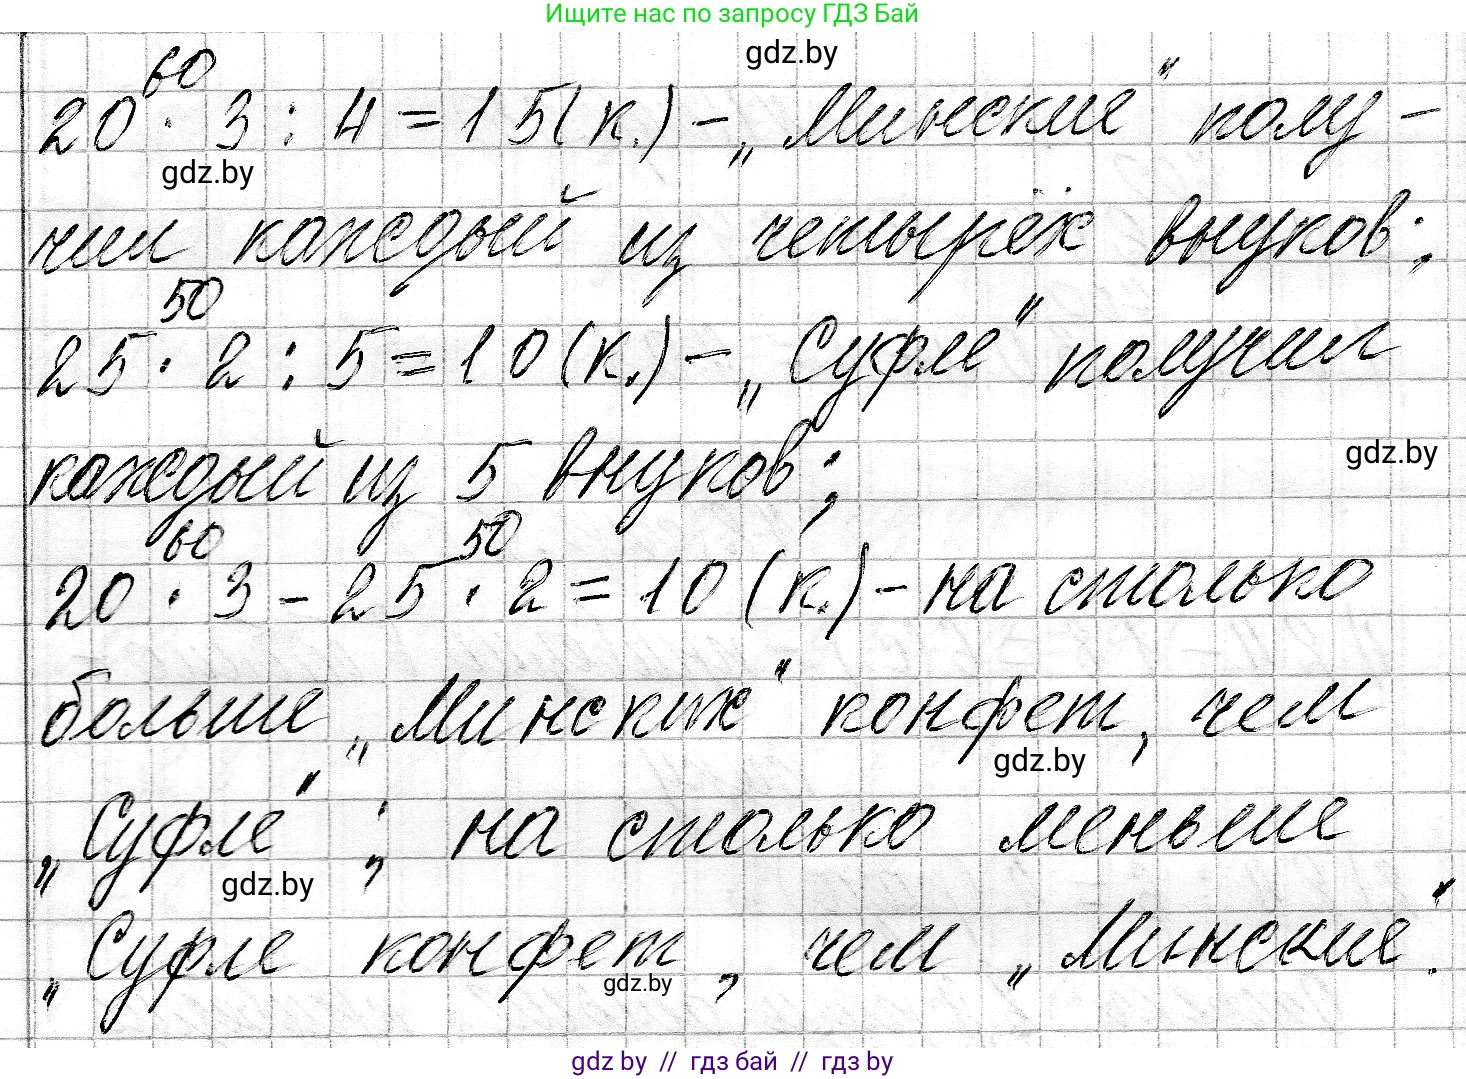 Ищите нас по запросу ГДЗ Бай
gdz.by
60
20 · 3 : 4 = 15 (к.) - „Минские" полу-
gdz.by
чил каждый из четырёх внуков;
50
25 · 2 : 5 = 10 (к.) - „Суфле" получил
каждый из 5 внуков;
gdz.by
60 50
20 · 3 - 25 · 2 = 10 (к.) - на столько
больше „Минских" конфет, чем
gdz.by
„Суфле"; на столько меньше
gdz.by
„Суфле конфет, чем „Минские".
gdz.by
gdz by // гдз бай // гдз by